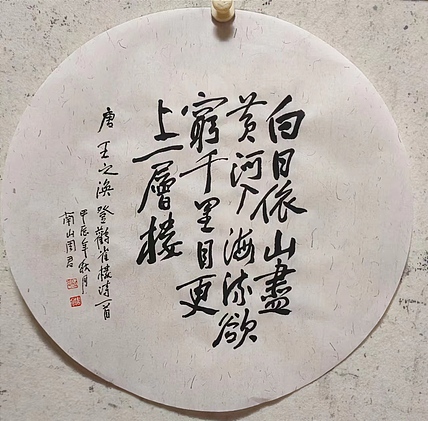 白日依山盡
黄河入海流欲
窮千里目更
上一層楼
唐 王之涣登鸛雀楼诗一首
甲辰年秋月
南山周君